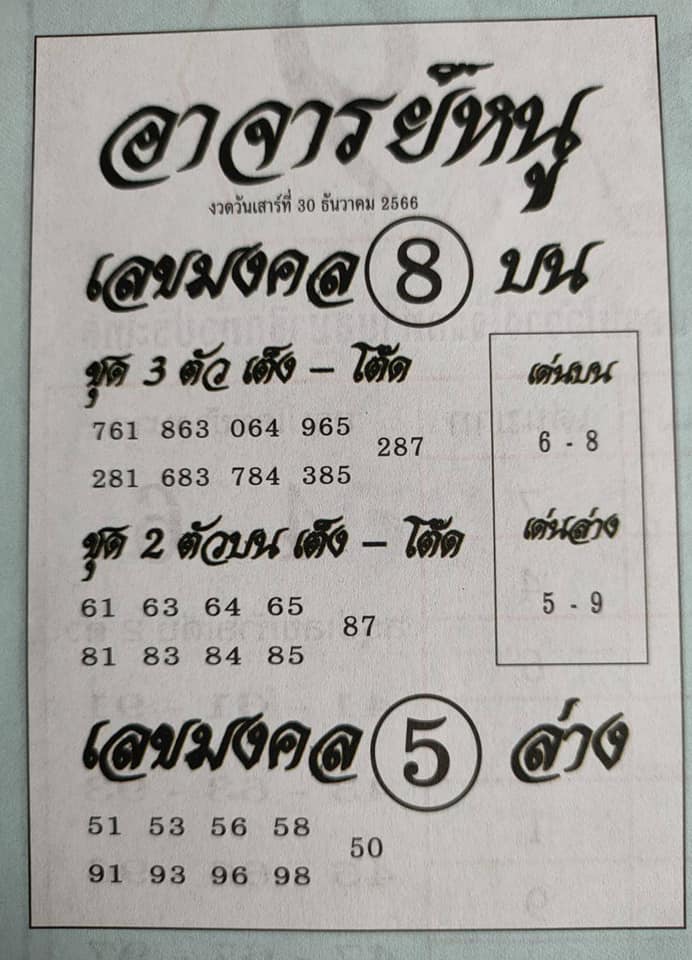 อาจารย์หนู
งวดวันเสาร์ที่ 30 ธันวาคม 2566
เลขมงคล 8 บน
ชุด 3 ตัว เต็ง – โต๊ด
761 863 064 965
287
281 683 784 385
เด่นบน
6 - 8
ชุด 2 ตัวบน เต็ง – โต๊ด
61 63 64 65
87
81 83 84 85
เด่นล่าง
5 - 9
เลขมงคล 5 ล่าง
51 53 56 58
50
91 93 96 98